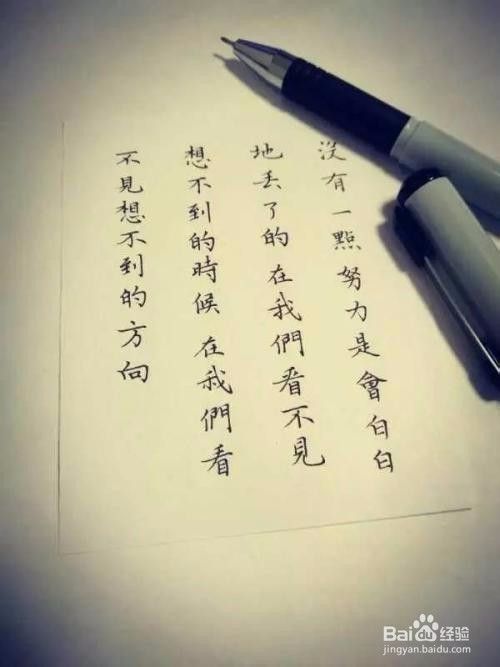 沒有一點努力是會白白
地丟了的在我們看不見
想不到的時候在我們看
不見想不到的方向
Baidu经验
jingyan.baidu.com